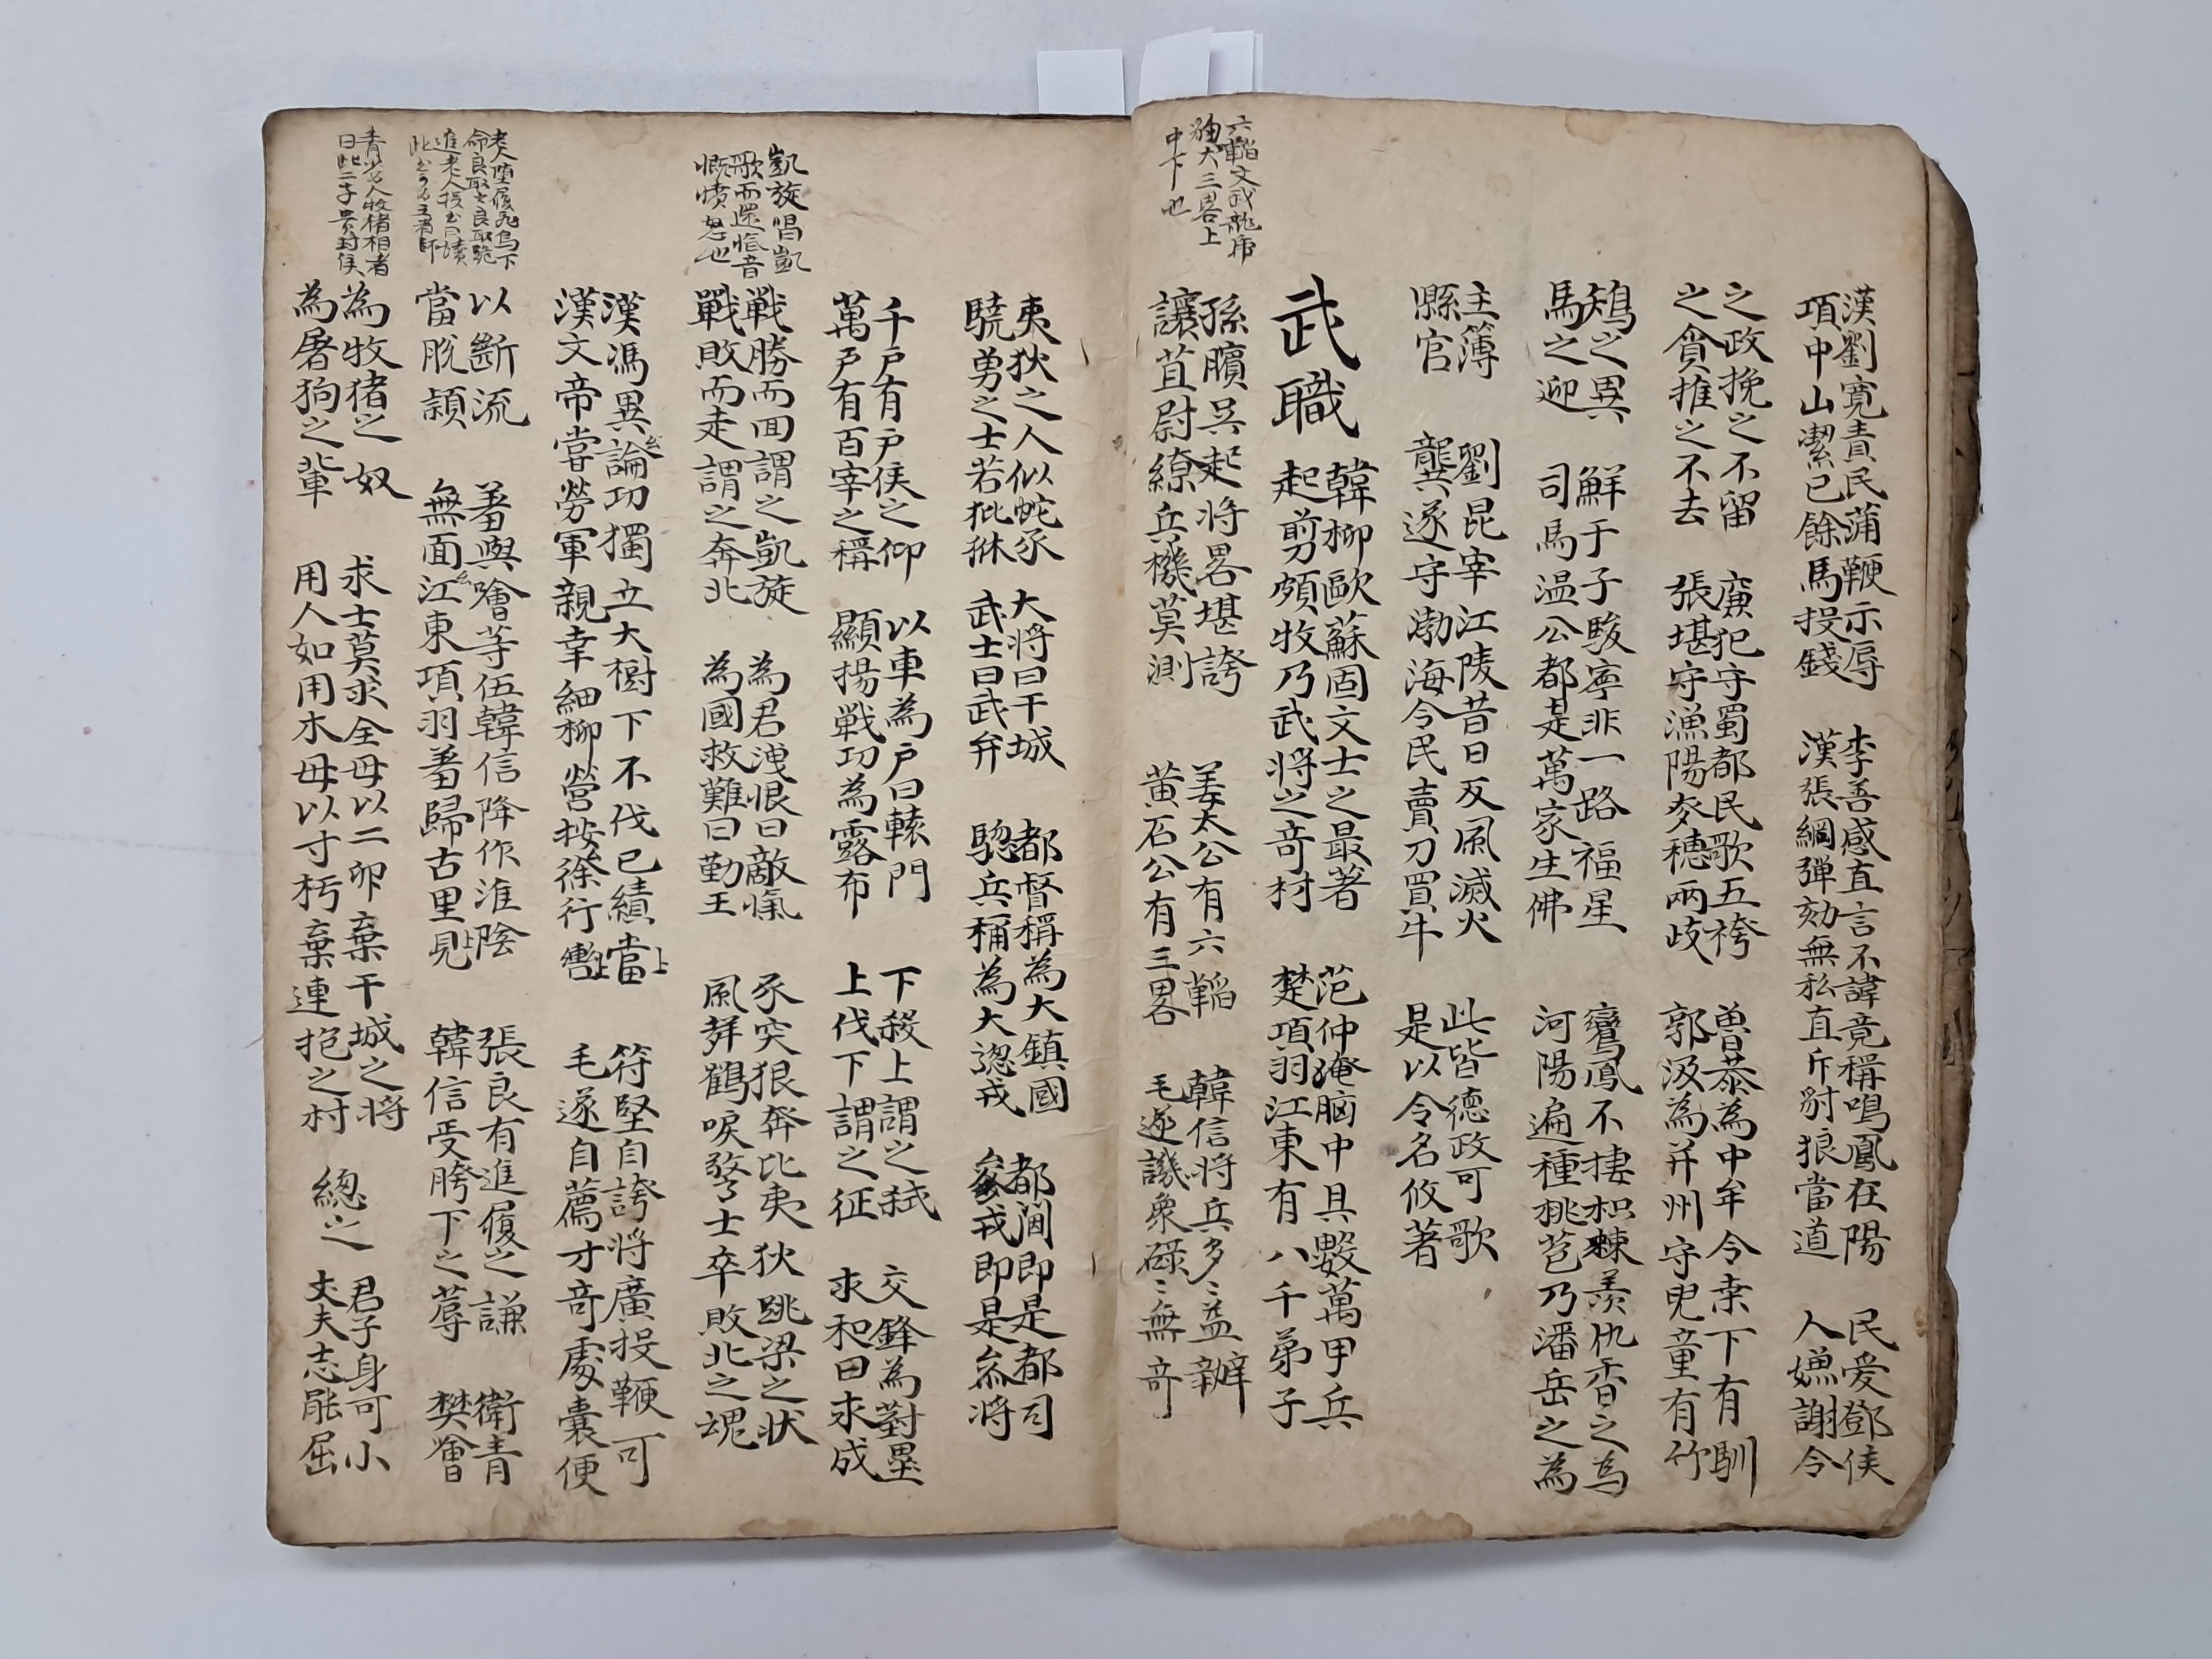 漢劉寬責民蒲鞭示辱 李善感直言不諱竟稱鳴鳳在陽 民爱鄧侯
項中山潔已餘馬投錢 漢張綱弹劾無私直斥豺狼當道 人嫌謝令
之政挽之不留 廉犯守蜀都民歌五袴 魯恭為中牟令桒下有馴
之貪推之不去 張堪守漁陽麥穗兩歧 郭汲為并州守児童有竹
雉之異 鮮于子駿寧非一路福星 鸞鳳不捿枳棘羡仇香之為
馬之迎 司馬温公都是萬家生佛 河陽遍種桃苞乃潘岳之為
主簿 劉昆宰江陵昔日反風滅火 此皆德政可歌
縣官 龔遂守渤海今民賣刀買牛 是以令名攸著
武職
韓柳歐蘇固文士之最著 范仲淹脑中具數萬甲兵
起剪頗牧乃武将之竒材 楚項羽江東有八千弟子
六韜文武龍虎
豹犬三畧上
中下也
孫臏吴起将畧堪誇 姜太公有六韜 韓信将兵多〻益辦
讓苴尉繚兵機莫測 黄石公有三畧 毛遂譏衆碌〻無竒
夷狄之人似蛇豕 大将曰干城 都督稱為大鎮國 都阃即是都司
驍勇之士若貔貅 武士曰武弁 騘兵稱為大揔戎 叅戎即是叅将
千戶有戶侯之仰 以車為戶曰轅門 下殺上謂之弑 交鋒為對壘
萬戶有百宰之稱 顯揚戦功為露布 上伐下謂之征 求和曰求成
凱旋唱凱
歌而還愾音
慨憤怒也
戰勝而回謂之凱旋 為君洩恨曰敵愾 豕突狠奔比夷狄跳梁之状
戰敗而走謂之奔北 為國救難曰勤王 風聲鶴唳驚士卒敗北之魂
漢馮異論功獨立大樹下不伐已績當 符堅自誇将廣投鞭可
漢文帝甞勞軍親幸細柳營按徐行轡 毛遂自薦才竒處囊便
老人堕履圯烏下
命良取之良取跪
進老人授书曰讀
此书可为王者師
以斷流 羞與噲等伍韓信降作淮陰 張良有進履之謙 衛青
當脫頴 無面江東項羽羞歸古里見 韓信受胯下之辱 樊噲
青少人牧猪相者
曰此二子貴封侯
為牧猪之奴 求士莫求全毋以二卵棄干城之将 君子身可小
為屠狗之輩 用人如用木毋以寸朽棄連抱之材 總之 丈夫志能屈